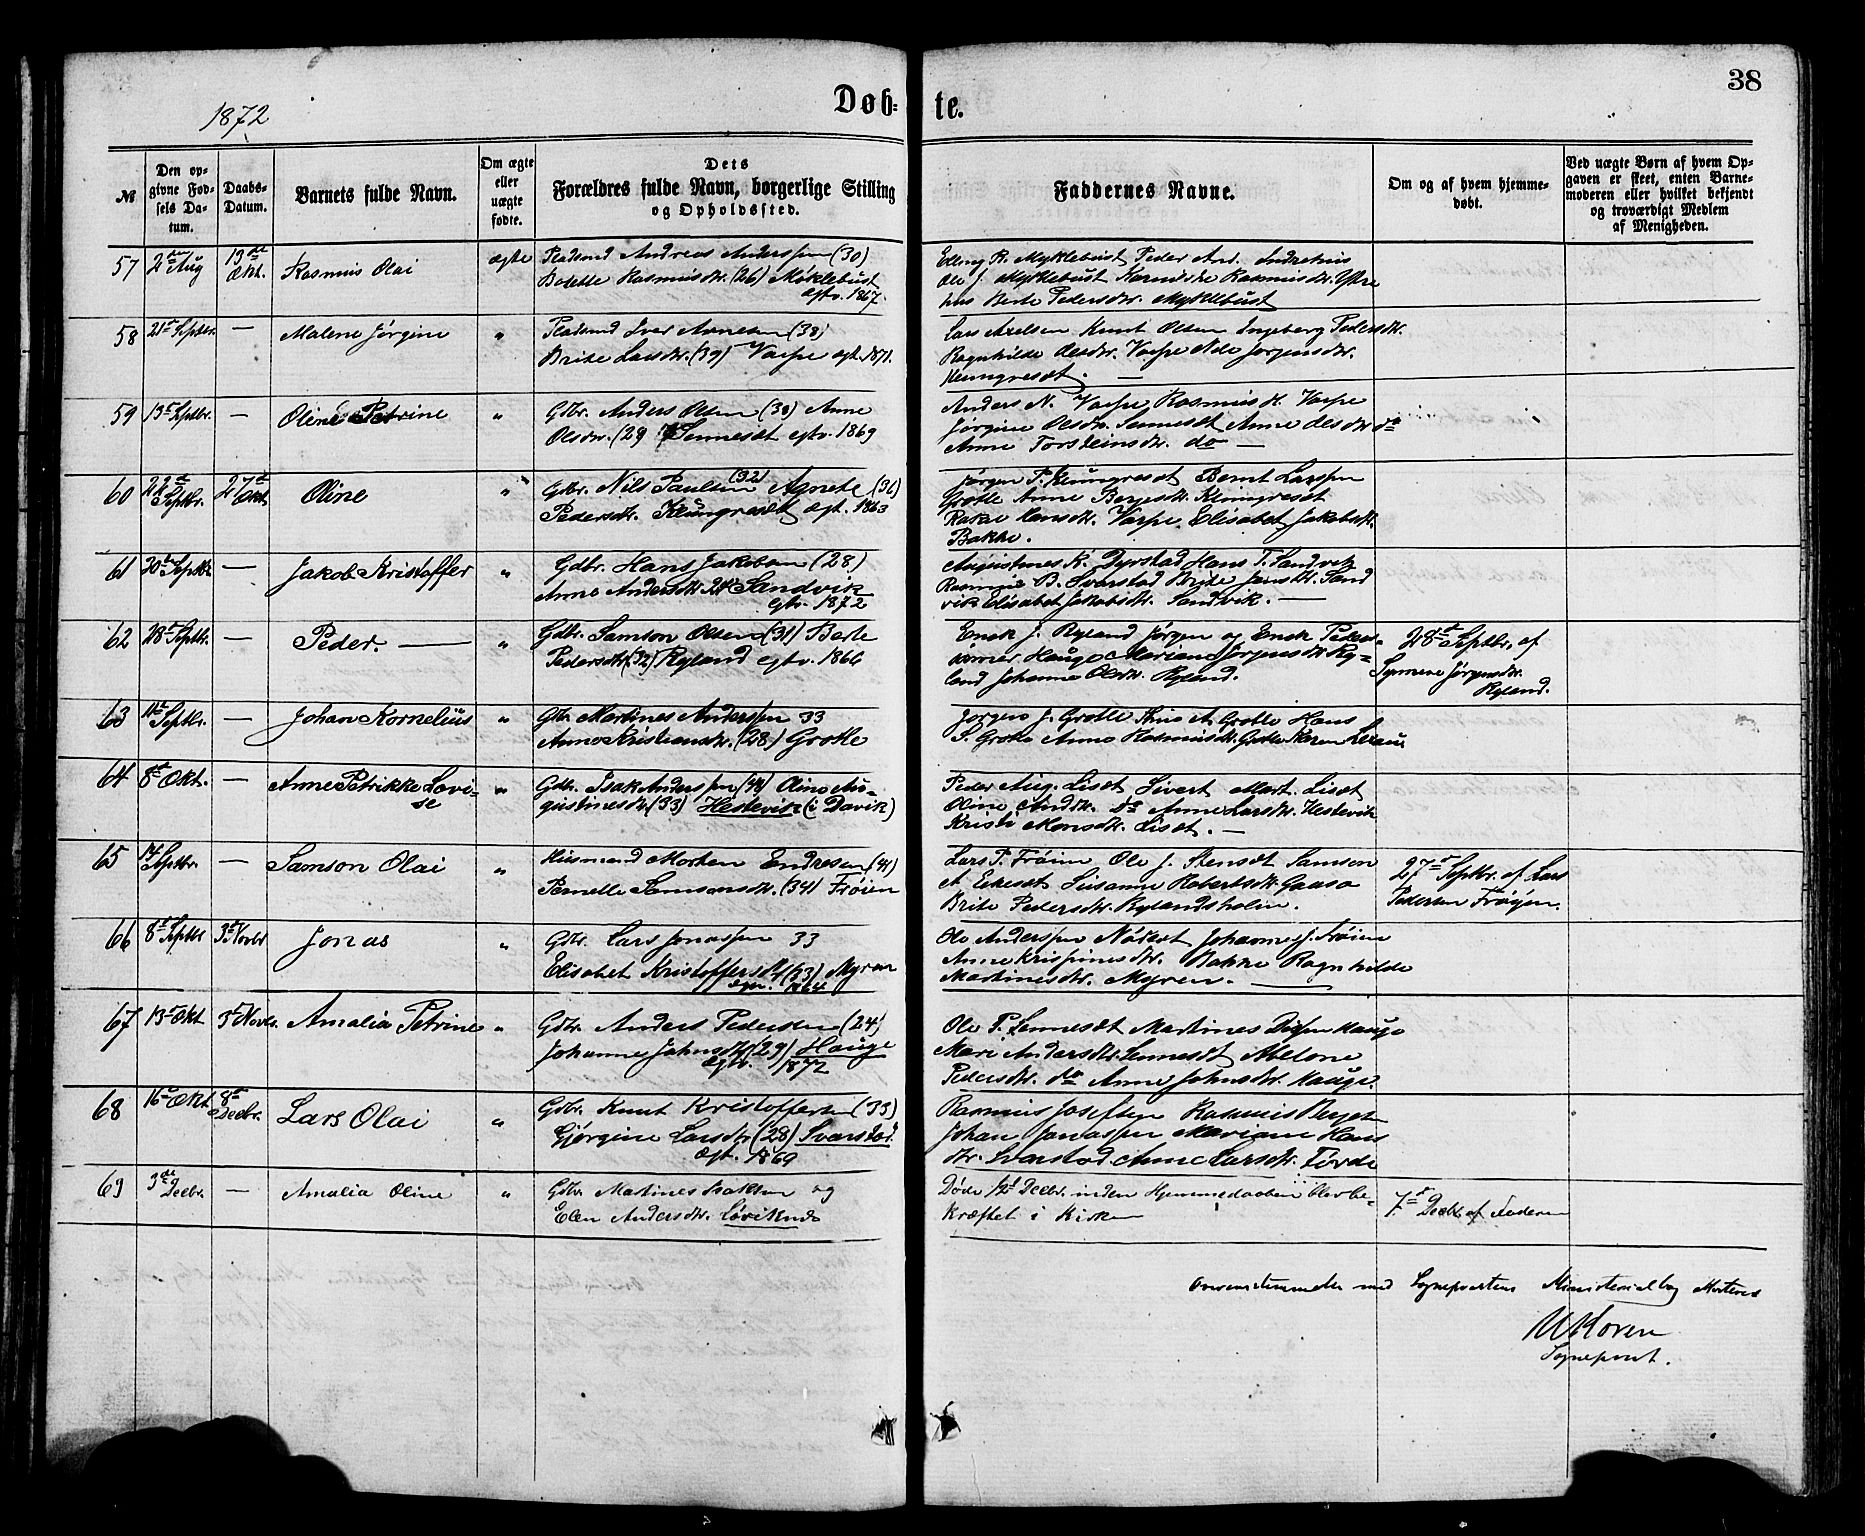 38
1872
Døb- te.
№
Den opgivne Fødsels Datum.
Daabs-Datum.
Barnets fulde Navn.
Om ægte eller uægte fødte.
Dets Forældres fulde Navn, borgerlige Stilling og Opholdssted.
Faddernes Navne.
Om og af hvem hjemmedøbt.
Ved uægte Børn af hvem Opgaven er skeet, enten Barnemoderen eller hvilket bekjendt og troværdigt Medlem af Menigheden.
57 2den Aug 13de Okt. Rasmus Olai ægte Pladsmd Andreas Anderssen (30)
Rasmusdtr. (26) Møklebust
egtv. 1867.
Elling R. Myklebust Peder And.
Ole J. Myklebust Rasmusdtr. Ytre
hus Berte Pedersdtr. Myklebust
58 21de Septbr. — Malene Jørgine " Pladsmd Iver Arnesen (38)
Brite Larsdtr. (39) Varpe egt. 1871.
Lars Axelsen Knut Olsen Ingeborg Pedersdtr.
Ragnhilde Olsdtr. Varpe Jørgensdtr.
Klungresæt. —
59 13de Septbr. — Oline Petrine " Gdbr. Anders Olsen (38) Anne
Olsdtr. (29 Senneset egtv. 1869
Anders N. Varpe Rasmus H. Varpe
Jørgine Olsdtr. Senneset Anne Olsdtr do
Anne Torsteinsdtr. do —
60 22de Septbr. 27de Okt. Oline " Gdbr. Nils Paulsen (32) Agnete (36)
Pedersdtr. Klungresæt egt. 1863
Jørgen P. Klungresæt Bernt Larssen
Grotle Anne Børgesdtr. Klungreset
Hansdtr. Varpe Elisabet Jakobsdtr.
Bakke.
61 20de Septbr — Jakob Kristoffer " Gdbr. Hans Jakobsen (28)
Anne Andersdtr 24 Sandvik
egtv. 1872
Augustines K. Dyrstad Hans T. Sandvik
Rasmus B. Svarstad Brite Jansdtr. Sand
vik Elisabet Jakobsdtr. Sandvik. —
62 28de Septbr. — Peder. — " Gdbr. Samson Olsen (31) Berte
Pedersdtr (32) Ryland egtv. 1866
Ensk J. Ryland Jørgen og Ensk Peders-
sønner Hauge Mariane Jørgensdtr Ry-
land Johanne Olsdtr. Ryland.
28de Septbr. af
Synneve Jørgensdtr.
Ryland.
63 11te Septbr. — Johan Kornelius " Gbr. Martines Anderssen 33
Anne Kristiansdtr. (28) Grotle
Jørgen J. Grotle A. Grotle Hans
S. Grotle Anne Rasmusdtr. Grotle Karen
64 8de Okt. — Anne Petrikke Lovi-
se " Gdbr. Isak Anderssen (44) Oline Au-
gustinesdtr (33) Hestevik (i Davik)
Peder Aug. Liset Sivert Mort. Liset
Oline Andr. do Anne Larsdtr. Hestevik
Kristi Monsdtr. Liset. —
65 14 Septbr. — Samson Olai " Husmand Morten Endresen (41)
Pernelle Samsonsdtr. (34) Frøien
Lars P. Frøien Ole J. Stensæt Samson
A Endreset Susanne Robertsdtr. Gaasø
Brite Pedersdtr. Rylandsholm.
27de Septbr. af Lars
Pedersen Frøyen.
66 8de Septbr 3de Novbr Jonas " Gdbr. Lars Jonassen 33
Elisabet Kristoffersdtr (33) Myren
egtv. 1864
Ole Anderssen Johannes J. Frøien
Anne Bakke Ragnhilde
Martinesdtr. Myren. —
67 13de Okt 3de Novbr. Amalia Petrine " Gdbr. Anders Pedersen (24)
Johanne Johnsdtr (29) Hauge
egtv. 1872
Ole P. Senneset Martines Hauge
Mari Andersdtr. Senneset Abelone
Pedersdtr. do Anne Johnsdtr. Hauge.
68 16de Okt 8de Decbr. Lars Olai " Gdbr. Knut Kristoffersen (33)
Gjørgine Larsdtr (28) Svarstad
egt. 1869
Rasmus Josefsen Rasmus Berget
Johan Jonassen Mariane Hans
dtr. Svarstad Anne Larsdtr. Førde
69 3de Decbr. — Amalia Oline " Gdbr Martines Isaksen og
Elen Andersdtr. Løviknes
Døde Decbr. inden Hjemmedaaben blev be-
kræftet i Kirken
7de Decbr. af Faderen
Overensstemmelse med Sognepræstens Ministerialbog
Koren
Sognepræst.